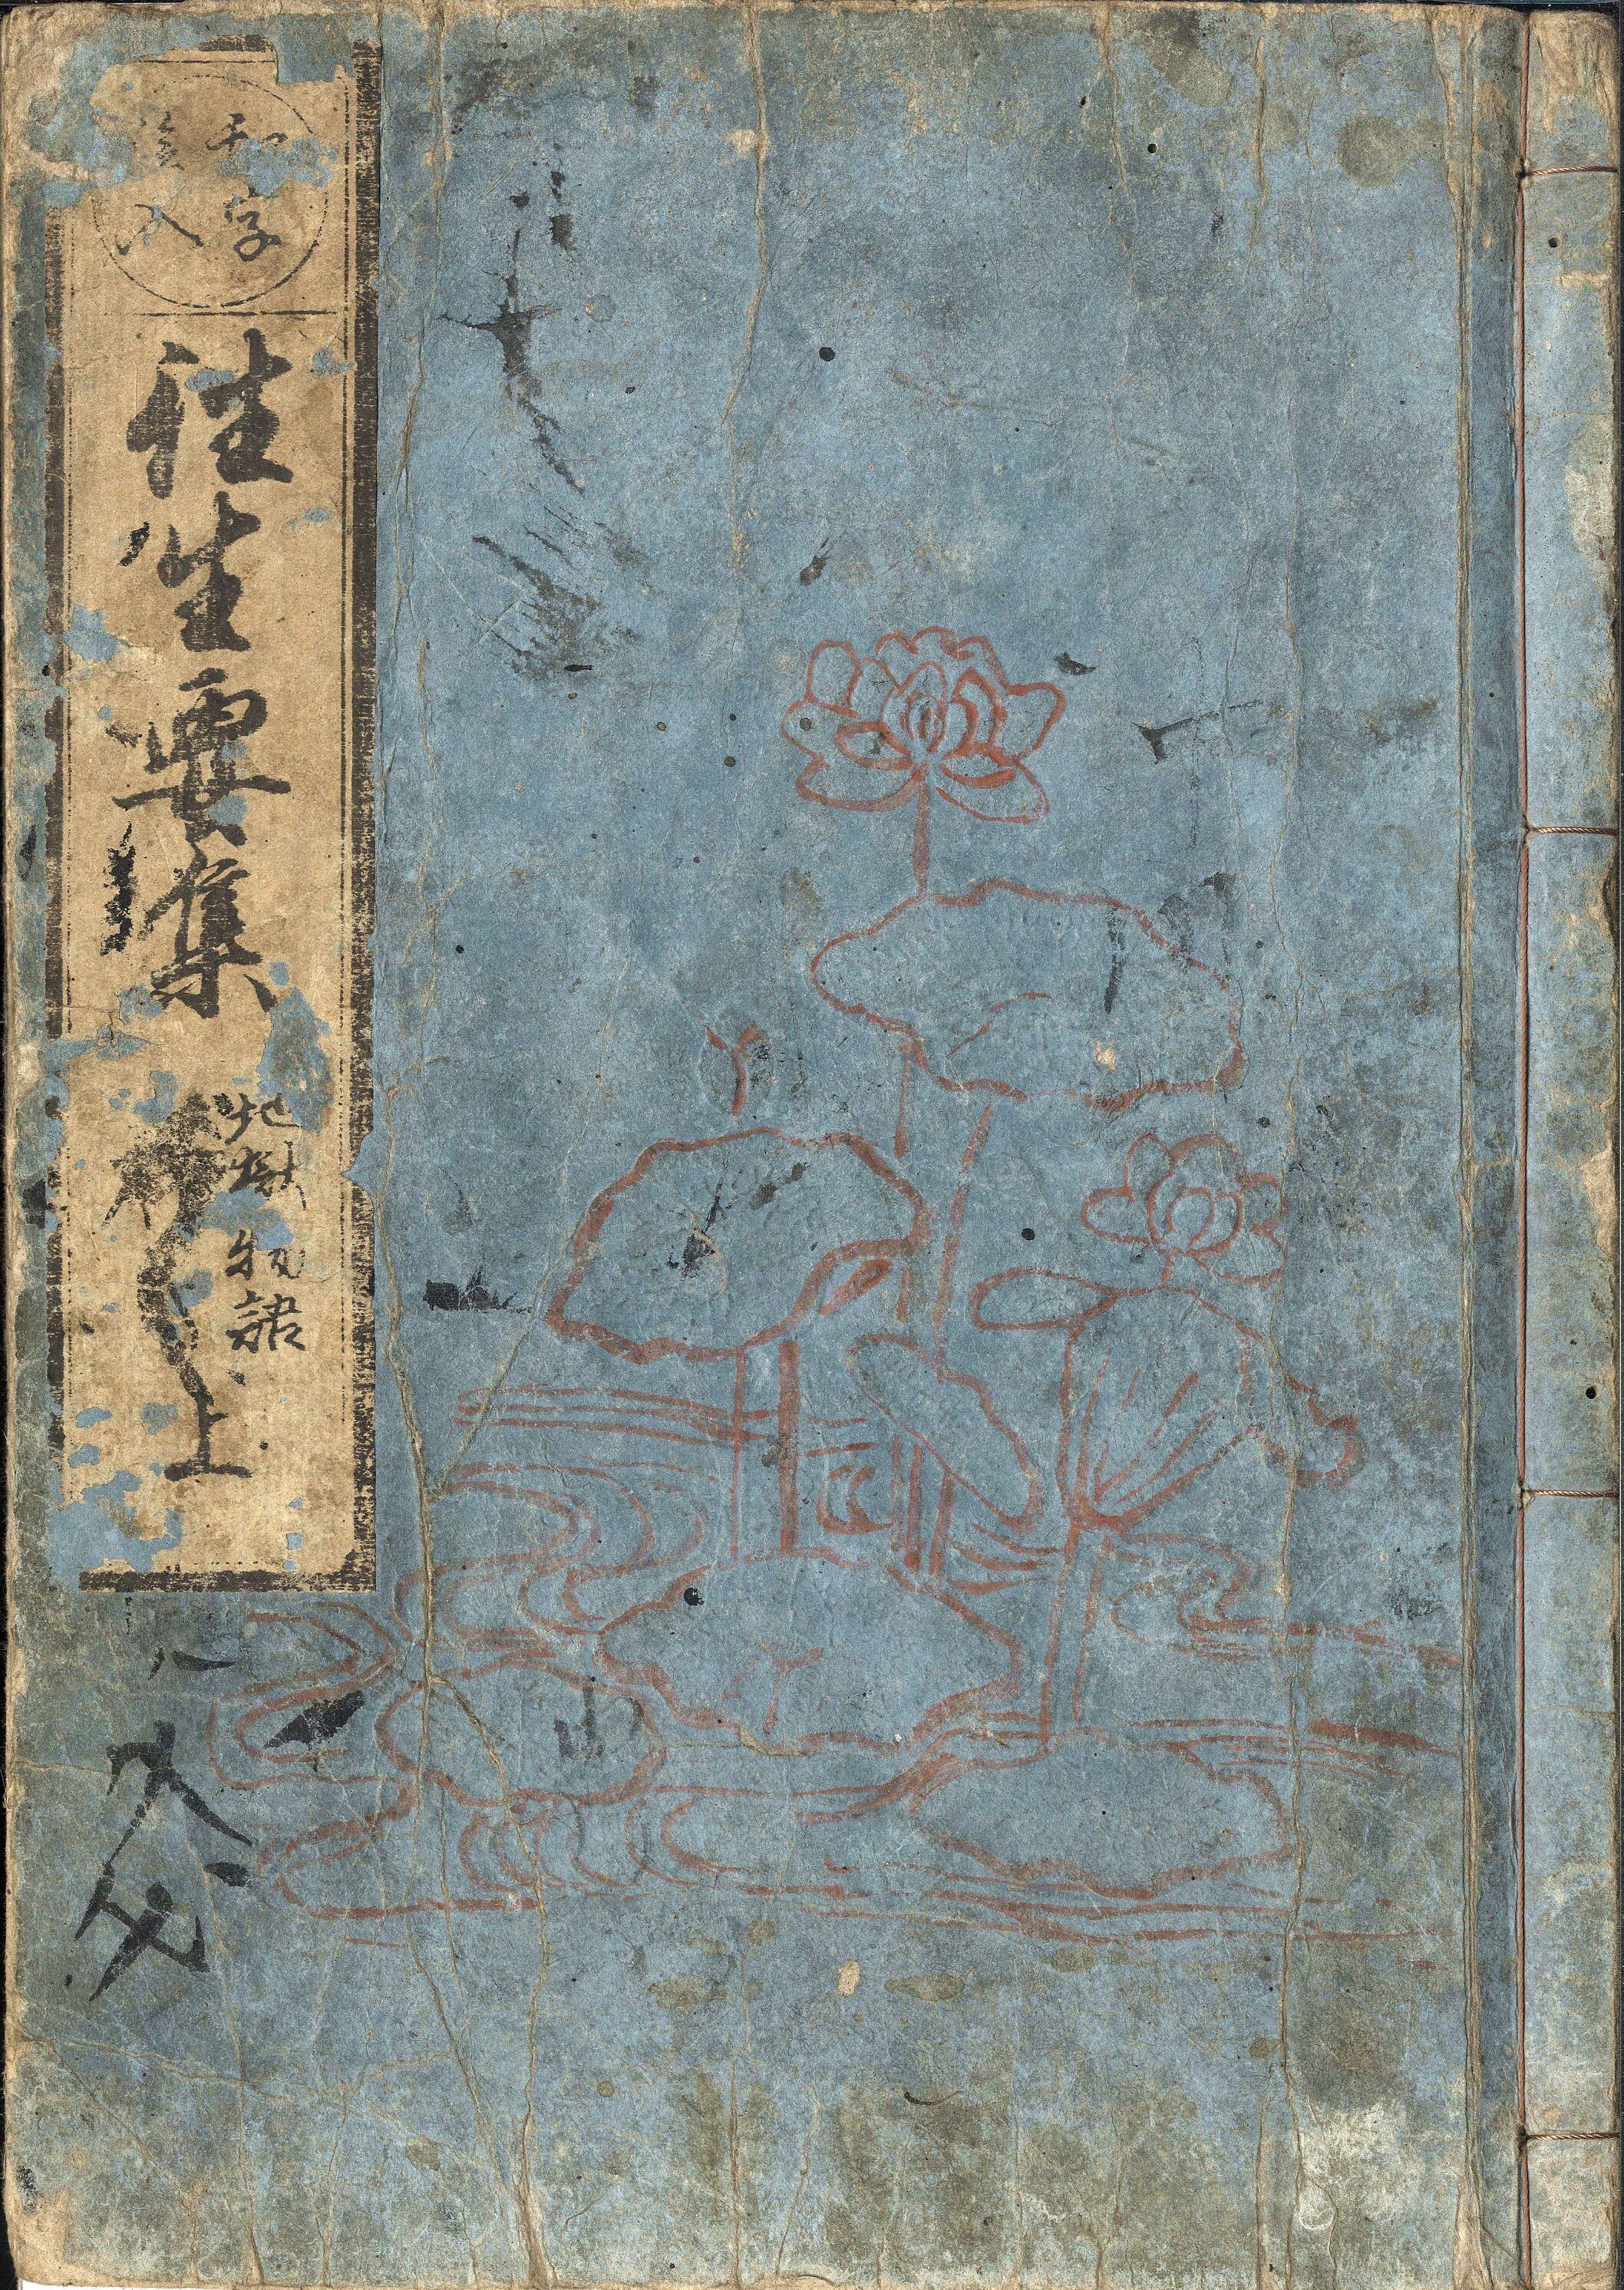 和字
絵入
往生要集
地獄物語
上